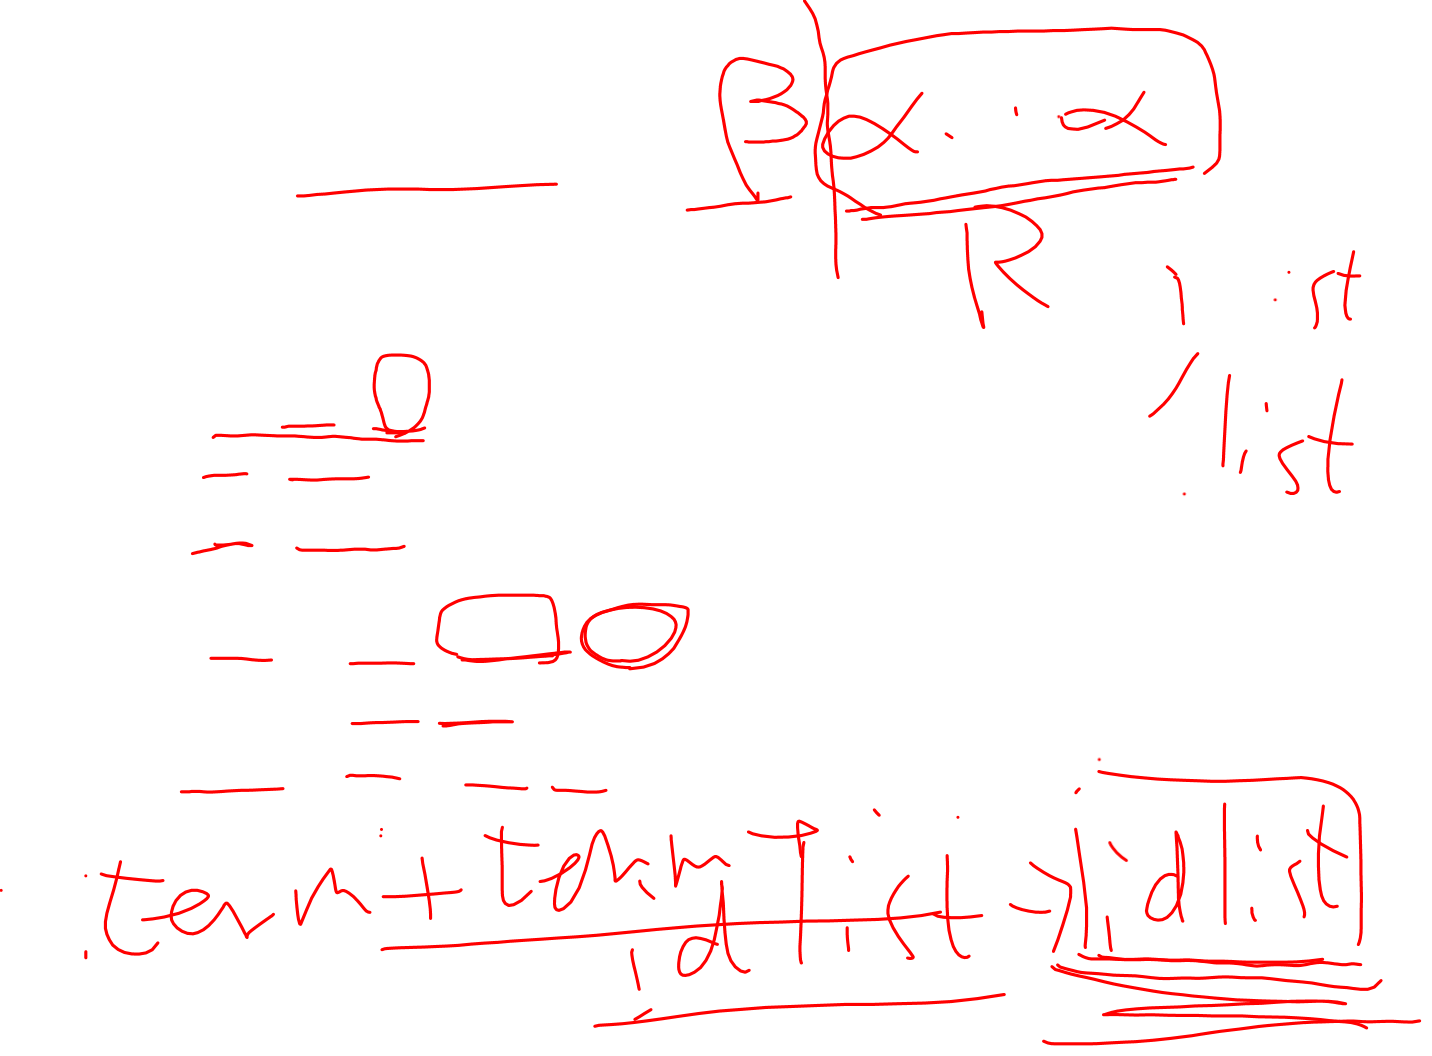 β α . . α
R
list
term + term
idlist → idlist